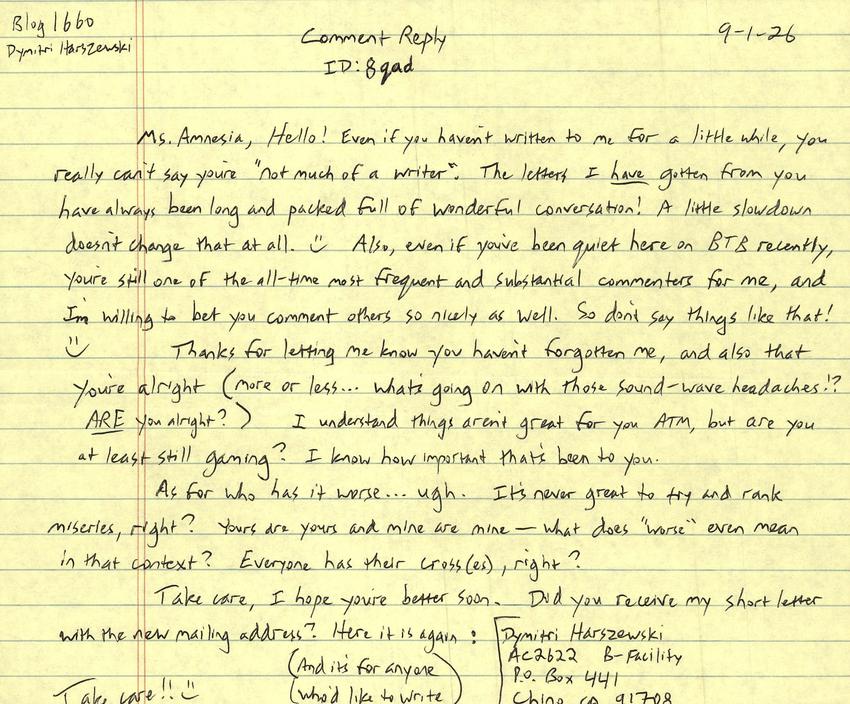 Blog 1660
Dymitri Harszewski
Comment Reply
ID: 8gad
9-1-26
Ms. Amnesia, Hello! Even if you haven't written to me for a little while, you
really can't say you're "not much of a writer". The letters I have gotten from you
have always been long and packed full of wonderful conversation! A little slowdown
doesn't change that at all. Also, even if you've been quiet here on BTB recently,
you're still one of the all-time most frequent and substantial commenters for me, and
I'm willing to bet you comment others so nicely as well. So don't say things like that!
Thanks for letting me know you haven't forgotten me, and also that
you're alright (more or less... what's going on with those sound-wave headaches!?
ARE you alright?) I understand things aren't great for you ATM, but are you
at least still gaming? I know how important that's been to you.
As for who has it worse... ugh. It's never great to try and rank
miseries, right? Yours are yours and mine are mine — what does "worse" even mean
in that context? Everyone has their cross(es), right?
Take care, I hope you're better soon. Did you receive my short letter
with the new mailing address? Here it is again:
Dymitri Harszewski
AC2622 B-Facility
P.O. Box 441
Chino, CA 91708
(And it's for anyone
(who'd like to write)
Take care!!